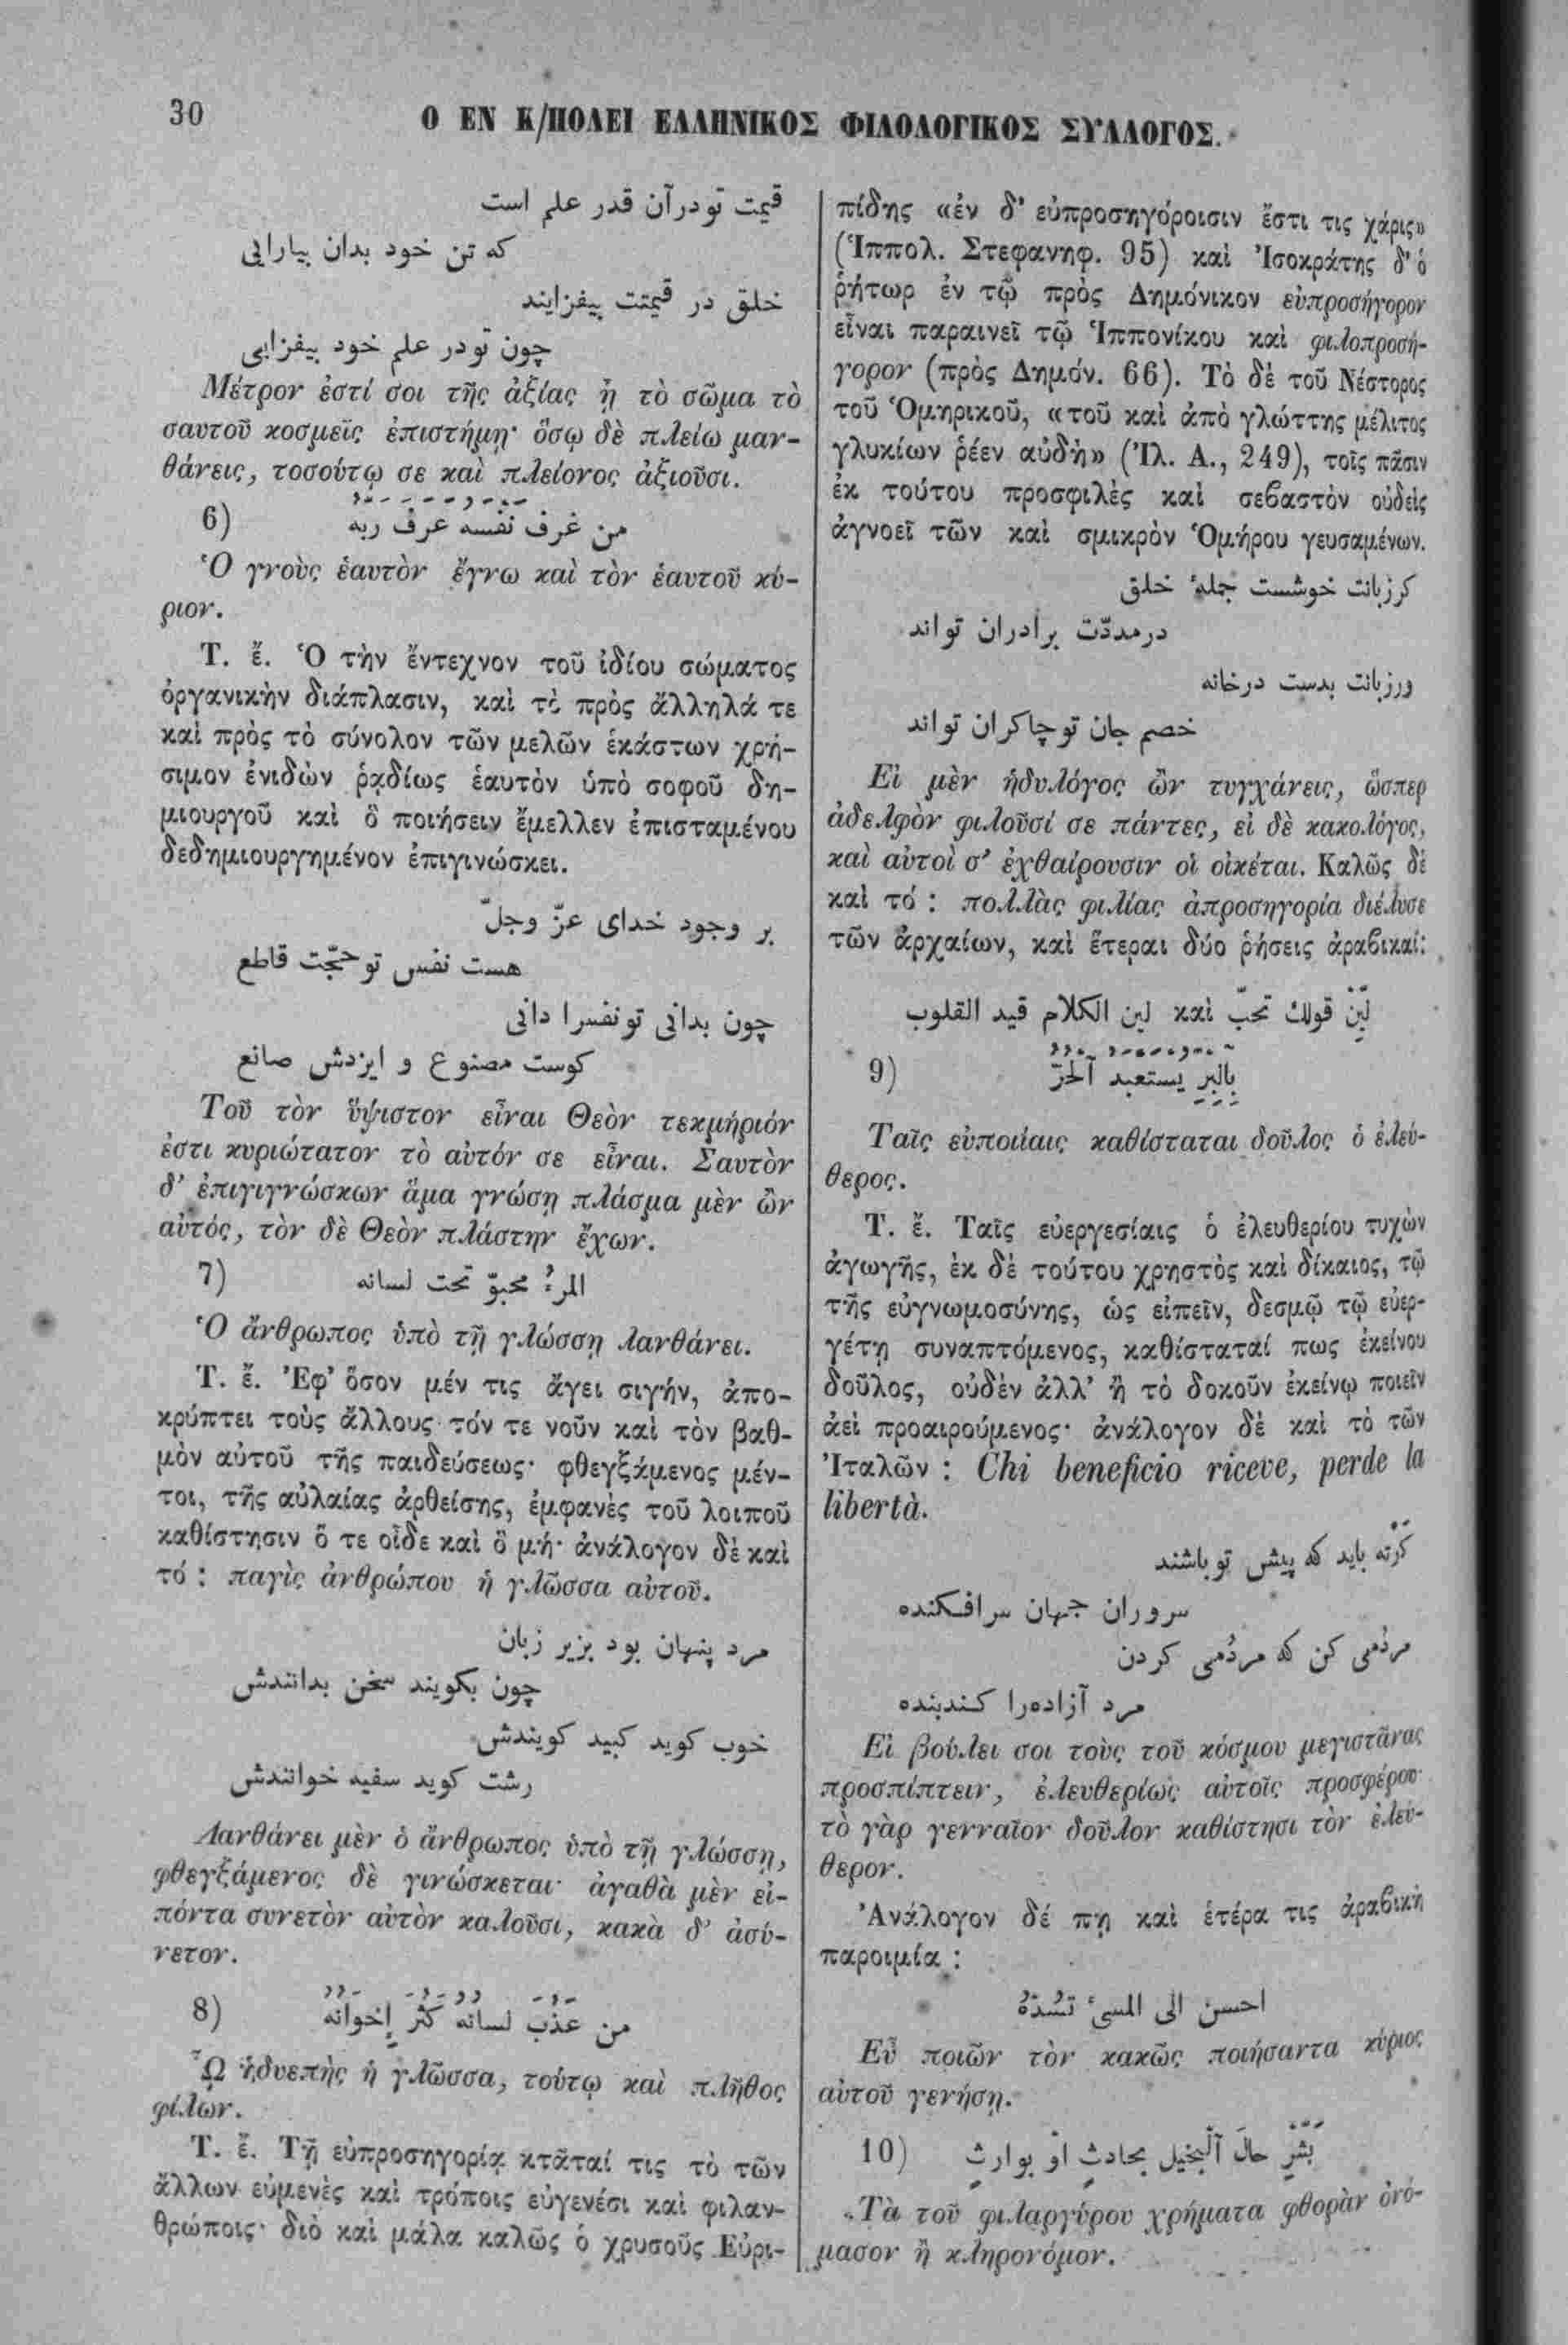 30
Ο ΕΝ Κ/ΠΟΛΕΙ ΕΛΛΗΝΙΚΟΣ ΦΙΛΟΛΟΓΙΚΟΣ ΣΥΛΛΟΓΟΣ.
قیمت تو درآن قدر علم است
که تن خود بدان بیارایی
خلق در قیمتت بیفزایند
چون تو در علم خود بیفزایی
Μέτρον ἐστί σοι τῆς ἀξίας ᾗ τὸ σῶμα τὸ
σαυτοῦ κοσμεῖς ἐπιστήμῃ· ὅσῳ δὲ πλείω μαν-
θάνεις, τοσούτῳ σε καὶ πλείονος ἀξιοῦσι.
6) من عرف نفسه عرف ربه
Ὁ γνοὺς ἑαυτὸν ἔγνω καὶ τὸν ἑαυτοῦ κύ-
ριον.
Τ. ἔ. Ὁ τὴν ἔντεχνον τοῦ ἰδίου σώματος
ὀργανικὴν διάπλασιν, καὶ τὸ πρὸς ἄλληλά τε
καὶ πρὸς τὸ σύνολον τῶν μελῶν ἑκάστων χρή-
σιμον ἐνιδὼν ῥᾳδίως ἑαυτὸν ὑπὸ σοφοῦ δη-
μιουργοῦ καὶ ὃ ποιήσειν ἔμελλεν ἐπισταμένου
δεδημιουργημένον ἐπιγινώσκει.
بر وجود خدای عزّ وجلّ
هست نفس تو حجّت قاطع
چون بدانی تو نفسرا دانی
کوست مصنوع و ایزدش صانع
Τοῦ τὸν ὕψιστον εἶναι Θεὸν τεκμήριόν
ἐστι κυριώτατον τὸ αὐτόν σε εἶναι. Σαυτὸν
δ' ἐπιγιγνώσκων ἅμα γνώσῃ πλάσμα μὲν ὢν
αὐτός, τὸν δὲ Θεὸν πλάστην ἔχων.
7) المرءُ مخبوّ تحت لسانه
Ὁ ἄνθρωπος ὑπὸ τῇ γλώσσῃ λανθάνει.
Τ. ἔ. Ἐφ' ὅσον μέν τις ἄγει σιγήν, ἀπο-
κρύπτει τοὺς ἄλλους τόν τε νοῦν καὶ τὸν βαθ-
μὸν αὐτοῦ τῆς παιδεύσεως· φθεγξάμενος μέν-
τοι, τῆς αὐλαίας ἀρθείσης, ἐμφανὲς τοῦ λοιποῦ
καθίστησιν ὅ τε οἶδε καὶ ὃ μή· ἀνάλογον δὲ καὶ
τό : παγὶς ἀνθρώπου ἡ γλῶσσα αὐτοῦ.
مرد پنهان بود بزیر زبان
چون بکویند سخن بدانندش
خوب کوید کبید کویندش
رشت کوید سفیه خوانندش
Λανθάνει μὲν ὁ ἄνθρωπος ὑπὸ τῇ γλώσσῃ,
φθεγξάμενος δὲ γινώσκεται· ἀγαθὰ μὲν εἰ-
πόντα συνετὸν αὐτὸν καλοῦσι, κακὰ δ' ἀσύ-
νετον.
8) من عَذُبَ لسانه كَثُرَ إِخوَانُهُ
Ὧ ἡδυεπὴς ἡ γλῶσσα, τούτῳ καὶ πλῆθος
φίλων.
Τ. ἔ. Τῇ εὐπροσηγορίᾳ κτᾶταί τις τὸ τῶν
ἄλλων εὐμενὲς καὶ τρόποις εὐγενέσι καὶ φιλαν-
θρώποις· διὸ καὶ μάλα καλῶς ὁ χρυσοῦς Εὐρι-
πίδης «ἐν δ' εὐπροσηγόροισιν ἔστι τις χάρις»
(Ἱππολ. Στεφανηφ. 95) καὶ Ἰσοκράτης δ' ὁ
ῥήτωρ ἐν τῷ πρὸς Δημόνικον εὐπροσήγορον
εἶναι παραινεῖ τῷ Ἱππονίκου καὶ φιλοπροσή-
γορον (πρὸς Δημόν. 66). Τὸ δὲ τοῦ Νέστορος
τοῦ Ὁμηρικοῦ, «τοῦ καὶ ἀπὸ γλώττης μέλιτος
γλυκίων ῥέεν αὐδὴ» (Ἰλ. Α., 249), τοῖς πᾶσιν
ἐκ τούτου προσφιλὲς καὶ σεβαστὸν οὐδεὶς
ἀγνοεῖ τῶν καὶ σμικρὸν Ὁμήρου γευσαμένων.
کرزبانت خوشست جملهٔ خلق
درمددّت برادران تواند
ورزبانت بدست درخانه
خصم جان تو چاکران تواند
Εἰ μὲν ἡδυλόγος ὢν τυγχάνεις, ὥσπερ
ἀδελφὸν φιλοῦσί σε πάντες, εἰ δὲ κακολόγος,
καὶ αὐτοὶ σ' ἐχθαίρουσιν οἱ οἰκέται. Καλῶς δὲ
καὶ τό : πολλὰς φιλίας ἀπροσηγορία διέλυσε
τῶν ἀρχαίων, καὶ ἕτεραι δύο ῥήσεις ἀραβικαί:
لَيِّنْ قولك تحبّ καὶ لين الكلام قيد القلوب
9) بِالبِرِ يستعبد اَلحُرّ
Ταῖς εὐποιίαις καθίσταται δοῦλος ὁ ἐλεύ-
θερος.
Τ. ἔ. Ταῖς εὐεργεσίαις ὁ ἐλευθερίου τυχὼν
ἀγωγῆς, ἐκ δὲ τούτου χρηστὸς καὶ δίκαιος, τῷ
τῆς εὐγνωμοσύνης, ὡς εἰπεῖν, δεσμῷ τῷ εὐερ-
γέτῃ συναπτόμενος, καθίσταταί πως ἐκείνου
δοῦλος, οὐδὲν ἀλλ' ἢ τὸ δοκοῦν ἐκείνῳ ποιεῖν
ἀεὶ προαιρούμενος· ἀνάλογον δὲ καὶ τὸ τῶν
Ἰταλῶν : Chi beneficio riceve, perde la
libertà.
کرته باید که پیش تو باشند
سروران جهان سرافکنده
مردُمی کن که مردُمی کردن
مرد آزاده‌را کندبنده
Εἰ βούλει σοι τοὺς τοῦ κόσμου μεγιστᾶνας
προσπίπτειν, ἐλευθερίως αὐτοῖς προσφέρου·
τὸ γὰρ γενναῖον δοῦλον καθίστησι τὸν ἐλεύ-
θερον.
Ἀνάλογον δέ πῃ καὶ ἑτέρα τις ἀραβικὴ
παροιμία :
احسن الى المسئ تسُدهُ
Εὖ ποιῶν τὸν κακῶς ποιήσαντα κύριος
αὐτοῦ γενήσῃ.
10) بَشّرْ حالَ اَلْبخيل بحادثٍ اوْ بوارثٍ
Τὰ τοῦ φιλαργύρου χρήματα φθορὰν ὀνό-
μασον ἢ κληρονόμον.